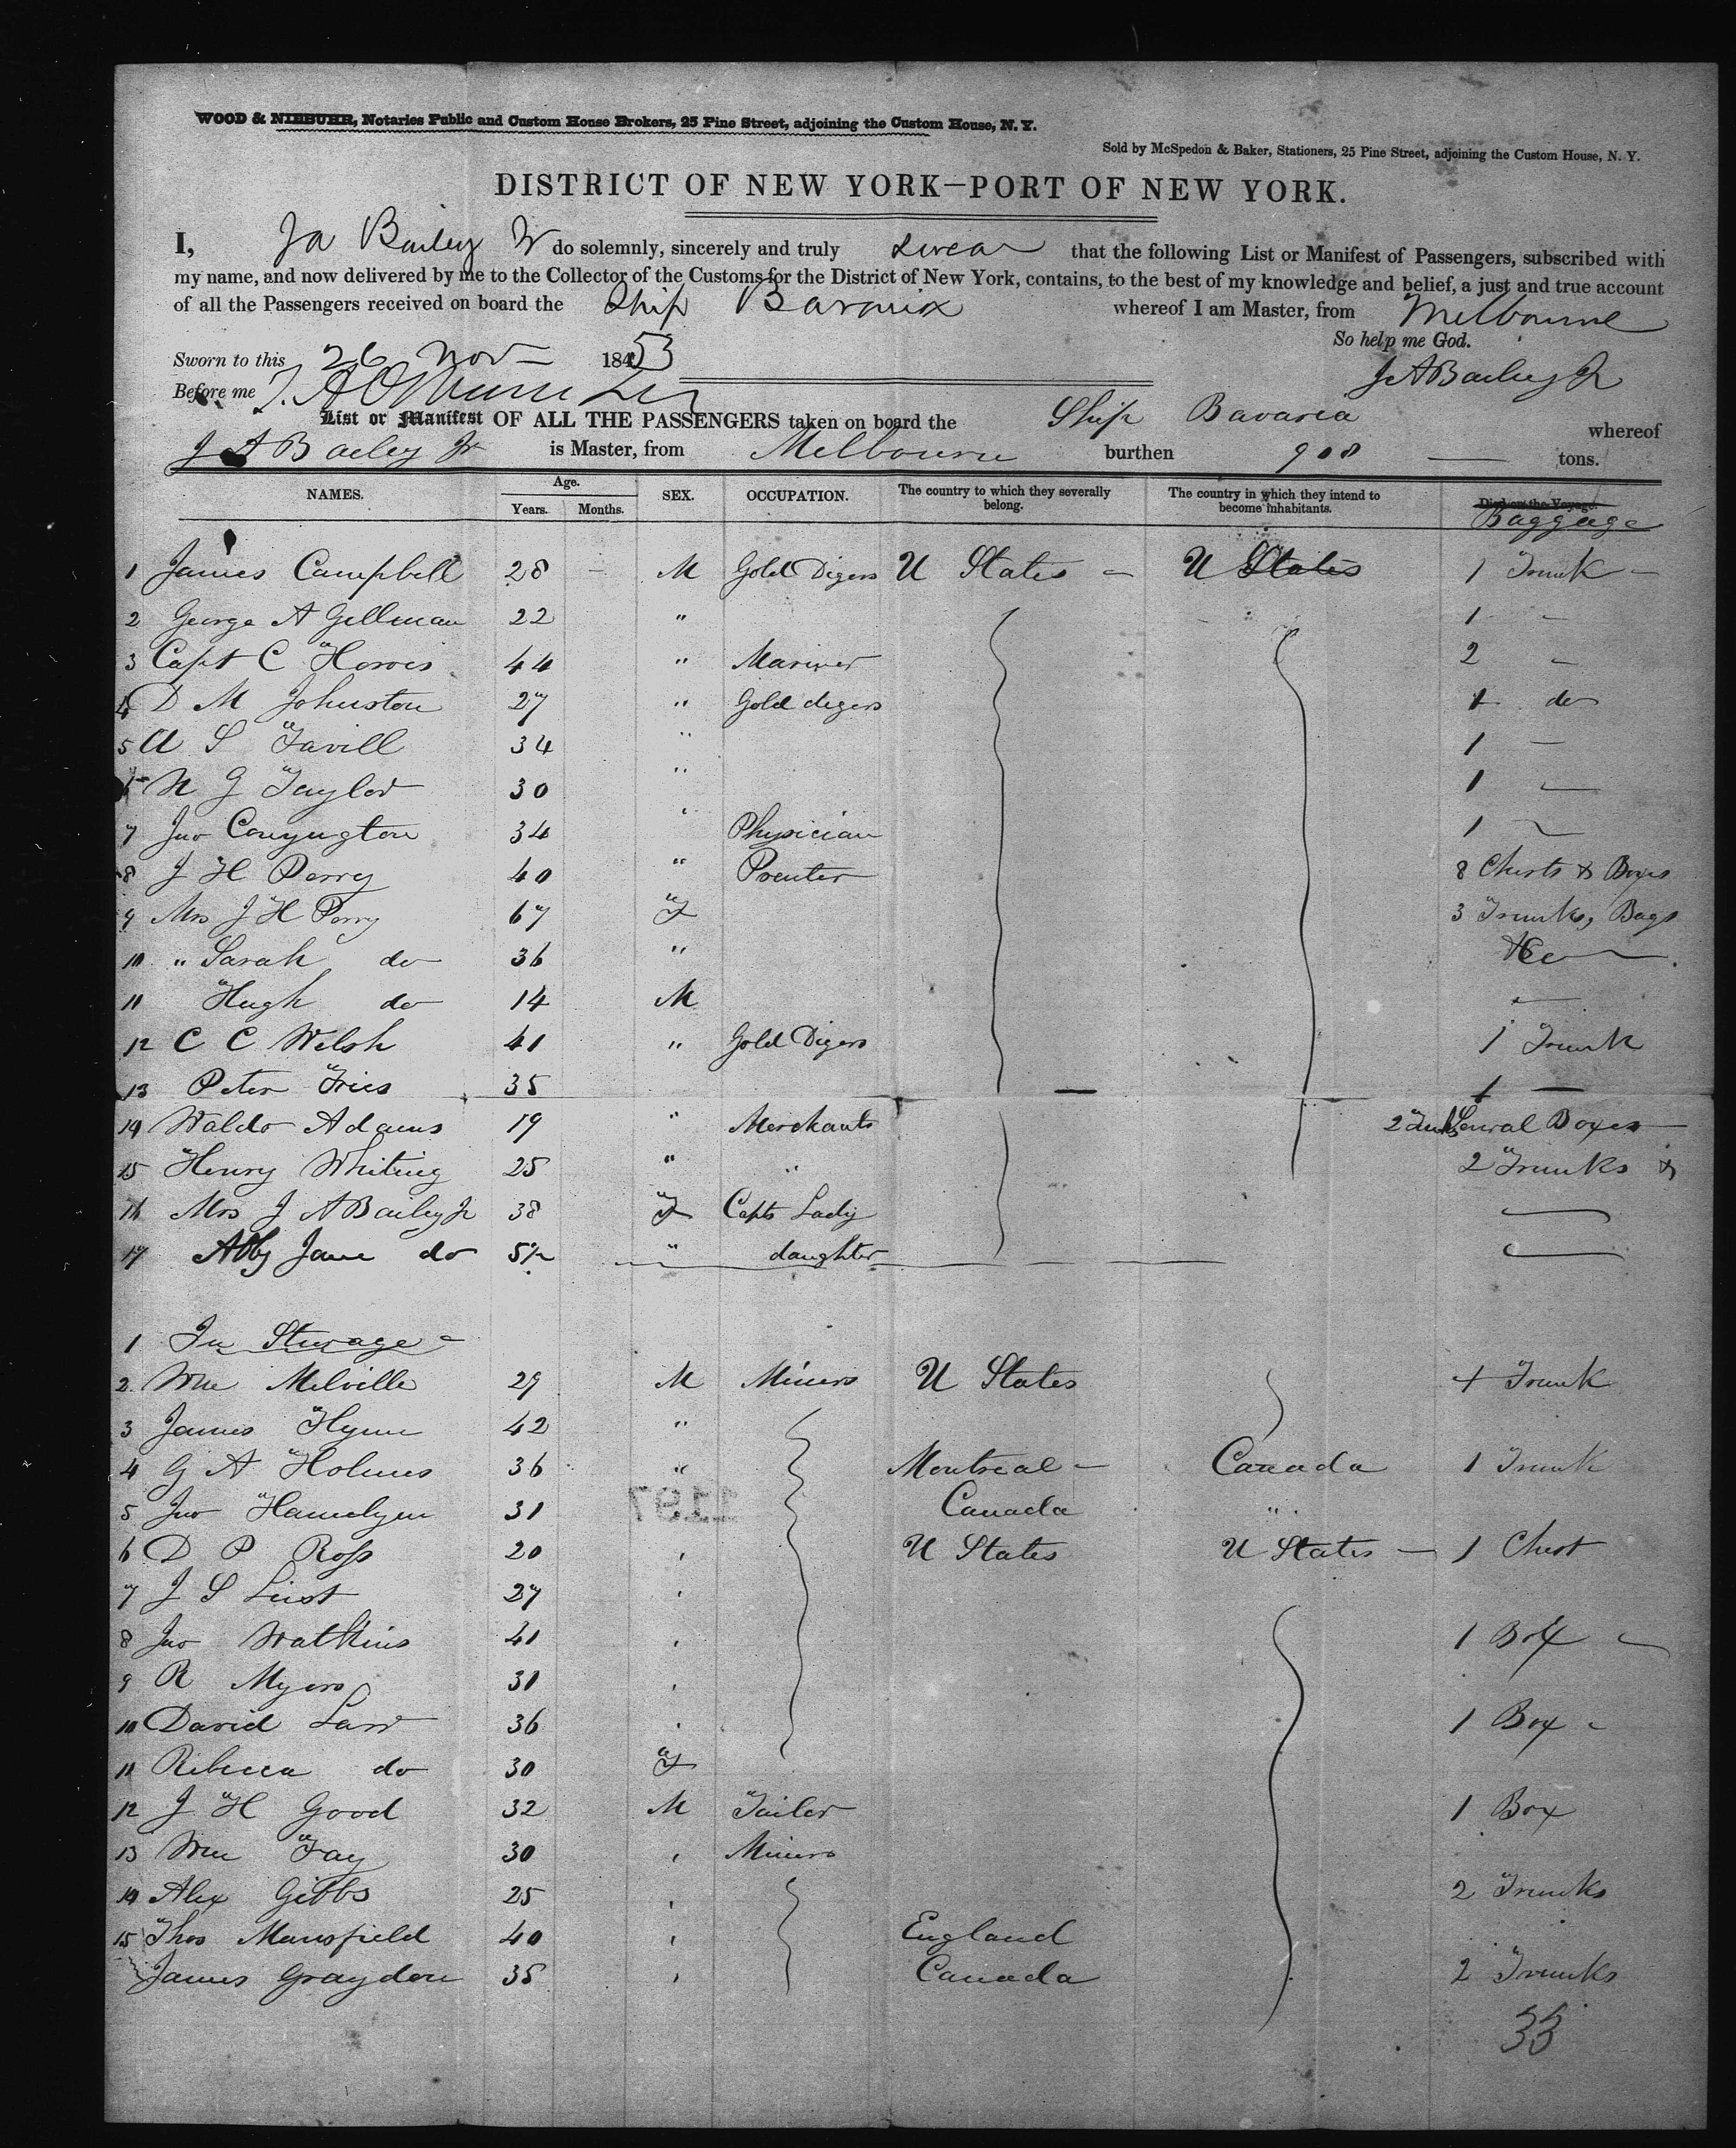 WOOD & NIEBUHR, Notaries Public and Custom House Brokers, 25 Pine Street, adjoining the Custom House, N. Y.
Sold by McSpedon & Baker, Stationers, 25 Pine Street, adjoining the Custom House, N. Y.
DISTRICT OF NEW YORK—PORT OF NEW YORK.
I, JA Bailey Jr do solemnly, sincerely and truly swear that the following List or Manifest of Passengers, subscribed with
my name, and now delivered by me to the Collector of the Customs for the District of New York, contains, to the best of my knowledge and belief, a just and true account
of all the Passengers received on board the Ship Bavaria whereof I am Master, from Melbourne
So help me God.
Sworn to this 26 Nov 1853
Before me
J A Bailey Jr
List or Manifest OF ALL THE PASSENGERS taken on board the Ship Bavaria whereof
J A Bailey Jr is Master, from Melbourne burthen 908 tons.
NAMES. Age. Years. Months. SEX. OCCUPATION. The country to which they severally belong. The country in which they intend to become inhabitants. Died on the Voyage. Baggage
1 James Campbell 28 M Gold Digers U States U States 1 Trunk
2 George A Gellman 22 " 1
3 Capt C Howes 44 " Mariner 2
4 D M Johnston 27 " Gold digers 1 do
5 A S Favill 34 " 1
6 N G Taylor 30 " 1
7 Jno Conyngton 34 " Physician 1
8 J H Perry 40 " Preuter 8 Chests & Boxes
9 Mrs J H Perry 67 F 3 Trunks, Bags
10 " Sarah do 36 " &c
11 Hugh do 14 M
12 C C Welsh 41 " Gold Digers 1 Trunk
13 Peter Fries 35 1
14 Waldo Adams 19 " Merchants 2 Boxes
15 Henry Whiting 25 " " 2 Trunks &
16 Mrs J A Bailey Jr 38 F Capts Lady
17 Abby Jane do 5½ " daughter
1 In Sturage
2 Wm Melville 29 M Miners U States 1 Trunk
3 James Flynn 42 "
4 G A Holmes 36 " Montreal Canada 1 Trunk
5 Jno Hamelyn 31 Canada "
6 D P Ross 20 U States U States 1 Chest
7 J S Lust 27
8 Jno Watkins 41 1 Box
9 R Myers 31
10 David Law 36 1 Box
11 Rebecca do 30 F
12 J H Good 32 M Tailor 1 Box
13 Wm Fay 30 Miners
14 Alex Gibbs 25 2 Trunks
15 Thos Mansfield 40 England
James Graydon 35 Canada 2 Trunks
33